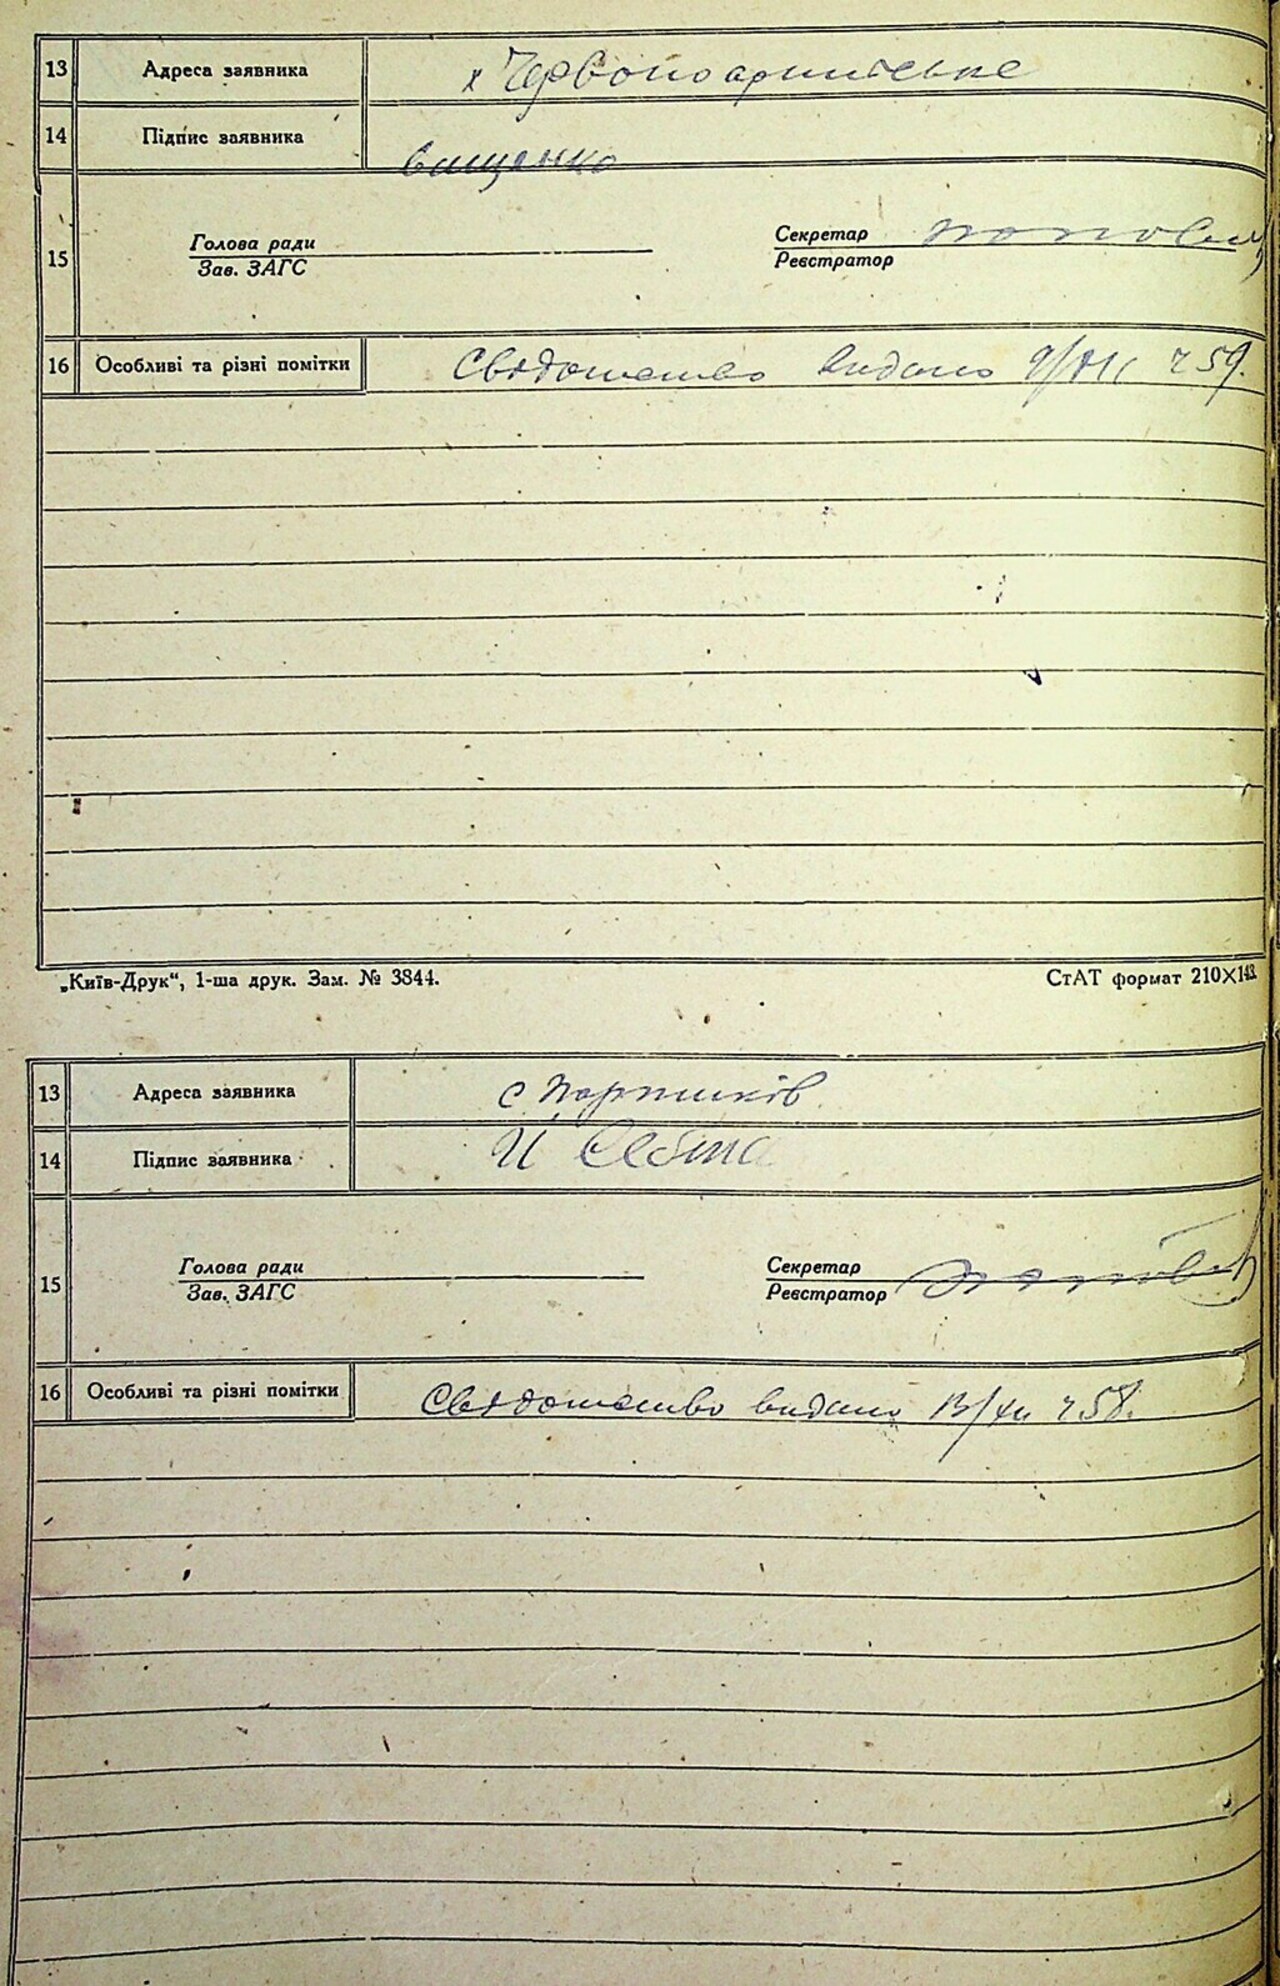 13 Адреса заявника х Червоноармійське
14 Підпис заявника Ващенко
15 Голова ради Секретар
Зав. ЗАГС Реєстратор
16 Особливі та різні помітки Свідотство видано 9/VII 59.
„Київ-Друк“, 1-ша друк. Зам. № 3844. СтАТ формат 210X143
13 Адреса заявника с.
14 Підпис заявника
15 Голова ради Секретар
Зав. ЗАГС Реєстратор
16 Особливі та різні помітки Свідотство видано 13/XII 58.